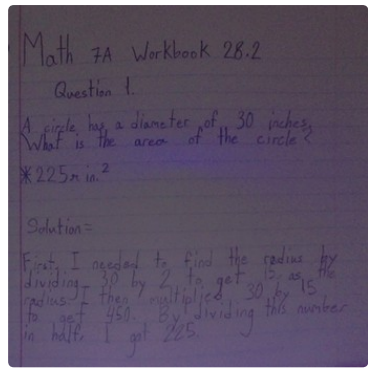 Math 7A Workbook 2B.2
Question 1.
A circle has a diameter of 30 inches.
What is the area of the circle?
*225π in.²
Solution=
First, I needed to find the radius by
dividing 30 by 2 to get 15 as the
radius. I then multiplied 30 by 15
to get 450. By dividing this number
in half, I got 225.